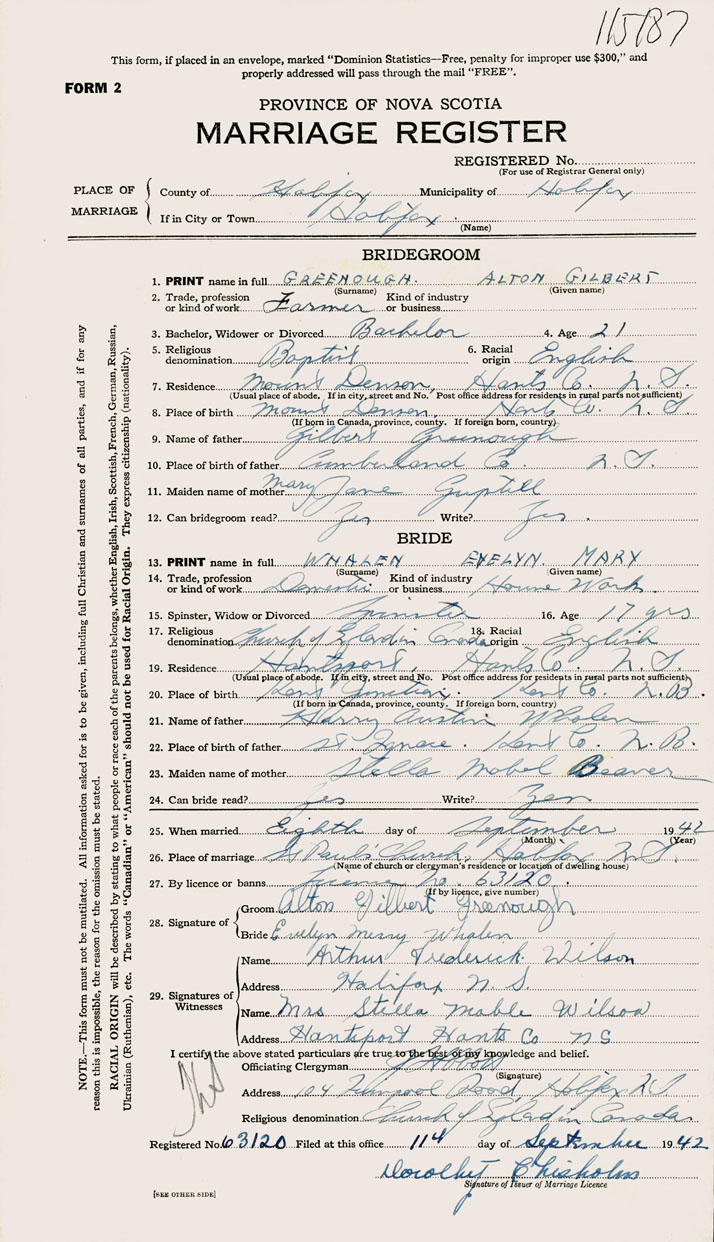 115187
This form, if placed in an envelope, marked "Dominion Statistics—Free, penalty for improper use $300," and
properly addressed will pass through the mail "FREE".
FORM 2
PROVINCE OF NOVA SCOTIA
MARRIAGE REGISTER
REGISTERED No.
(For use of Registrar General only)
PLACE OF MARRIAGE
County of Halifax Municipality of Halifax
If in City or Town Halifax
(Name)
BRIDEGROOM
1. PRINT name in full GREENOUGH. ALTON GILBERT
(Surname) (Given name)
2. Trade, profession or kind of work Farmer Kind of industry or business
3. Bachelor, Widower or Divorced Bachelor 4. Age 21
5. Religious denomination Baptist 6. Racial origin English
7. Residence Mount Denson, Hants Co. N.S.
(Usual place of abode. If in city, street and No. Post office address for residents in rural parts not sufficient)
8. Place of birth Mount Denson, Hants Co. N.S.
(If born in Canada, province, county. If foreign born, country)
9. Name of father Gilbert Greenough
10. Place of birth of father Cumberland Co. N.S.
11. Maiden name of mother Mary Jane Guptill
12. Can bridegroom read? Yes Write? Yes.
BRIDE
13. PRINT name in full WHALEN EVELYN. MARY
(Surname) (Given name)
14. Trade, profession or kind of work Domestic Kind of industry or business House Work.
15. Spinster, Widow or Divorced Spinster 16. Age 17 yrs
17. Religious denomination Church of England in Canada 18. Racial origin English
19. Residence Hantsport, Hants Co. N.S.
(Usual place of abode. If in city, street and No. Post office address for residents in rural parts not sufficient)
20. Place of birth Kent Junction. Kent Co. N.B.
(If born in Canada, province, county. If foreign born, country)
21. Name of father Harry Austin Whalen
22. Place of birth of father St Ignace. Kent Co. N.B.
23. Maiden name of mother Stella Mabel Beaver
24. Can bride read? Yes Write? Yes
25. When married Eighth day of September 1942
(Month) (Year)
26. Place of marriage St Paul's Church, Halifax N.S.
(Name of church or clergyman's residence or location of dwelling house)
27. By licence or banns License no. 63120.
(If by licence, give number)
28. Signature of
Groom Alton Gilbert Greenough
Bride Evelyn Mary Whalen
29. Signatures of Witnesses
Name Arthur Frederick Wilson
Address Halifax N.S.
Name Mrs Stella Mable Wilson
Address Hantsport Hants Co NS
I certify the above stated particulars are true to the best of my knowledge and belief.
Officiating Clergyman
(Signature)
Address 104 Liverpool Road, Halifax NS
Religious denomination Church of England in Canada
Registered No. 63120 Filed at this office 11th day of September 1942
Dorothy Chisholm
Signature of Issuer of Marriage Licence
[SEE OTHER SIDE]
NOTE.—This form must not be mutilated. All information asked for is to be given, including full Christian and surnames of all parties, and if for any
reason this is impossible, the reason for the omission must be stated.
RACIAL ORIGIN will be described by stating to what people or race each of the parents belongs, whether English, Irish, Scottish, French, German, Russian,
Ukrainian (Ruthenian), etc. The words "Canadian" or "American" should not be used for Racial Origin. They express citizenship (nationality).